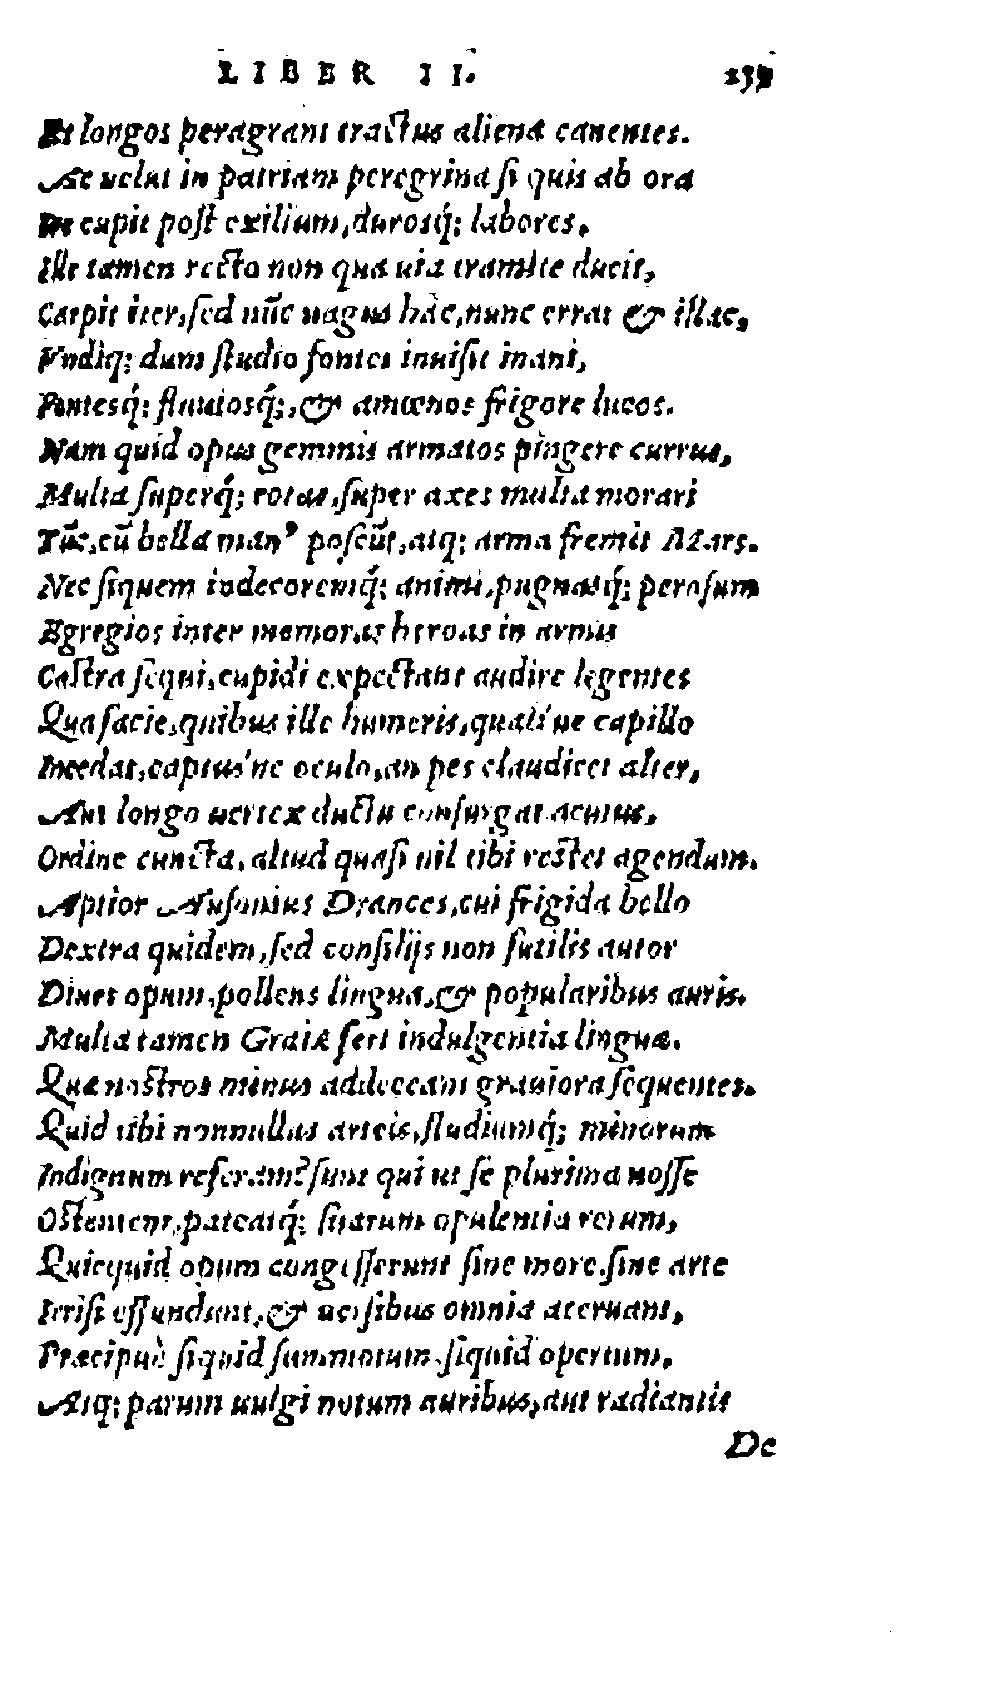 LIBER II. 139
Et longos peragrant tractus aliena canentes.
Ac uelut in patriam peregrina si quis ab ora
Ire cupit post exilium, durosq́; labores,
Ille tamen recto non qua uia tramite ducit,
Carpit iter, sed nūc uagus hàc, nunc errat & illac,
Vndiq; dum studio fontes inuisit inani,
Fontesq́; fluuiosq́;, & amœnos frigore lucos.
Nam quid opus gemmis armatos pingere currus,
Multa superq́; rotas, super axes multa morari
Tūc, cū bella man⁹ poscūt, atq; arma fremit Mars.
Nec siquem indecoremq́; animi, pugnasq́; perosum
Egregios inter memoras heroas in armis
Castra sequi, cupidi expectant audire legentes
Qua facie, quibus ille humeris, quali'ue capillo
Incedat, captus'ne oculo, an pes claudicet alter,
Aut longo uertex ductu consurgat acutus,
Ordine cuncta, aliud quasi nil tibi restet agendum.
Aptior Ausonius Drances, cui frigida bello
Dextra quidem, sed consilijs non futilis autor
Diues opum, pollens lingua, & popularibus auris.
Multa tamen Graiæ fert indulgentia linguæ.
Quæ nostros minus addeceant grauiora sequentes.
Quid tibi nonnullas arteis, studiumq́; minorum
Indignum referam? sunt qui ut se plurima nosse
Ostentent, pateatq́; suarum opulentia rerum,
Quicquid opum congesserunt sine more, sine arte
Irrisi effundunt, & uersibus omnia aceruant,
Præcipuè siquid summotum, siquid opertum,
Atq; parum uulgi notum auribus, aut radiantis
De